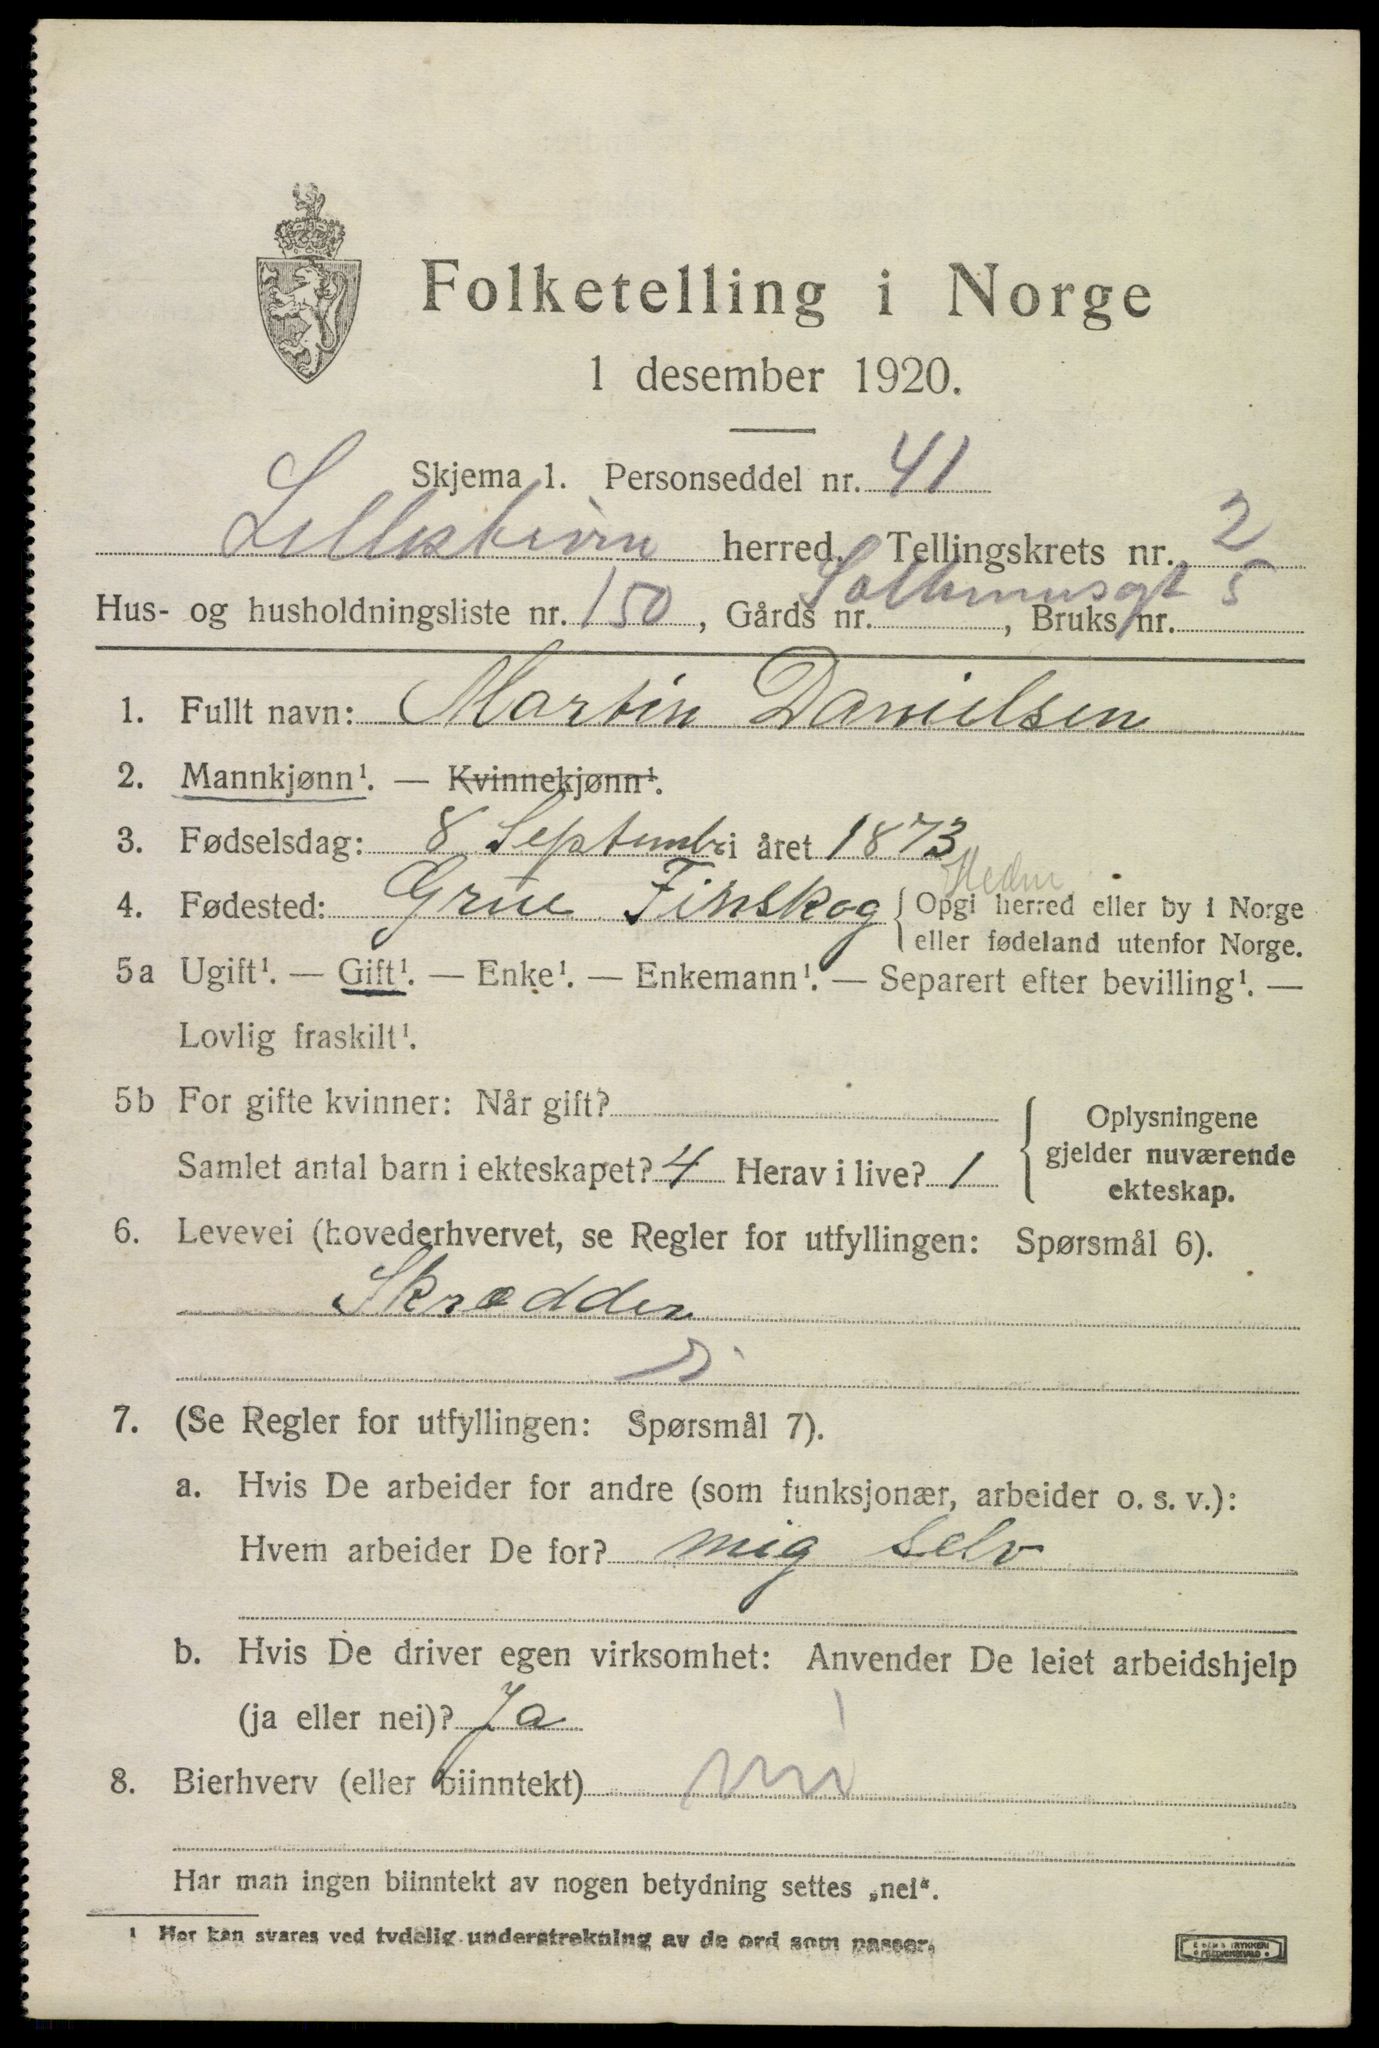 Folketelling i Norge
1 desember 1920.
Skjema 1. Personseddel nr. 41
Lillestrøm herred. Tellingskrets nr. 2
Hus- og husholdningsliste nr. 150, Gårds nr. , Bruks nr. 5
1. Fullt navn: Martin Danielsen
2. Mannkjønn¹. — Kvinnekjønn¹.
3. Fødselsdag: 8 Septembr i året 1873
Hedm
4. Fødested: Grue Finskog { Opgi herred eller by i Norge
eller fødeland utenfor Norge.
5a Ugift¹. — Gift¹. — Enke¹. — Enkemann¹. — Separert efter bevilling¹. —
Lovlig fraskilt¹.
5b For gifte kvinner: Når gift?
Samlet antal barn i ekteskapet? 4 Herav i live? 1
Oplysningene
gjelder nuværende
ekteskap.
6. Levevei (hovederhvervet, se Regler for utfyllingen: Spørsmål 6).
Skrædder
7. (Se Regler for utfyllingen: Spørsmål 7).
a. Hvis De arbeider for andre (som funksjonær, arbeider o. s. v.):
Hvem arbeider De for? mig selv
b. Hvis De driver egen virksomhet: Anvender De leiet arbeidshjelp
(ja eller nei)? Ja
8. Bierhverv (eller biinntekt) nei
Har man ingen biinntekt av nogen betydning settes „nei“.
¹ Her kan svares ved tydelig understrekning av de ord som passer.